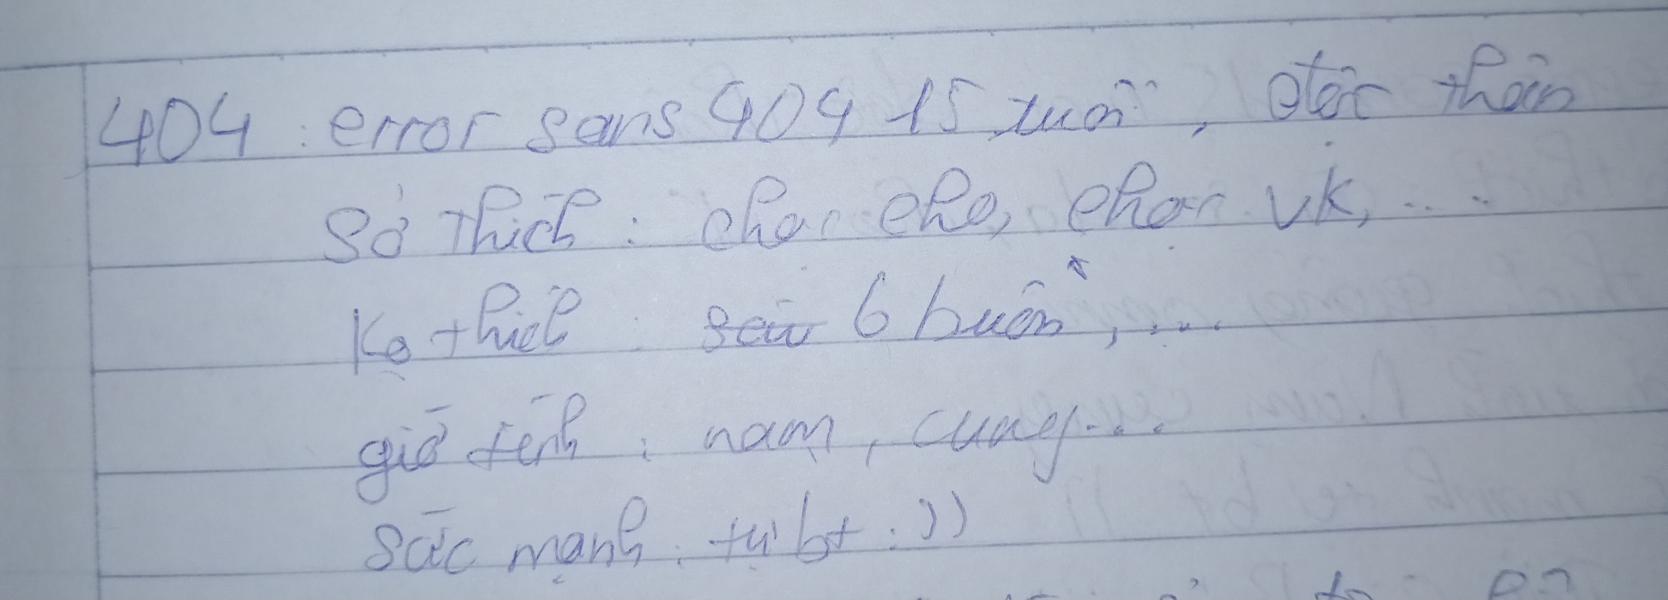 404 : error sans 404 15 tuổi, độc thân
Sở thích : chọc cho, chọc vk, ....
Ko thích : 6 buồn, ....
giớ tính : nam, cung...
Sức mạnh : tự bt :))